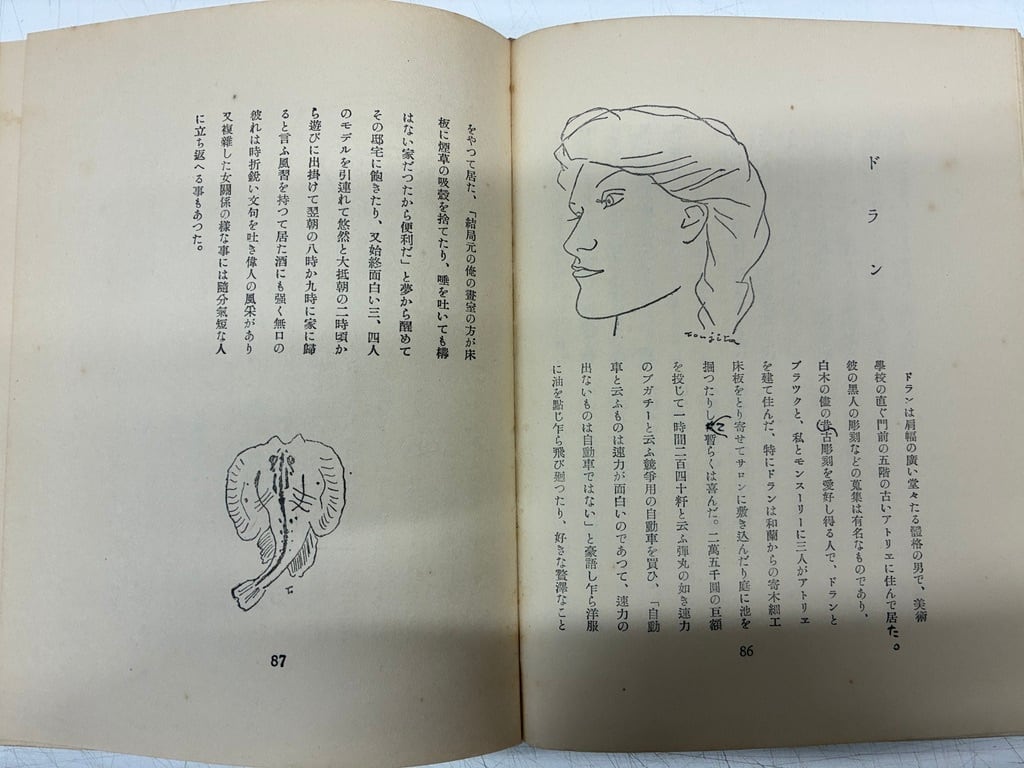 ドラン
Foujita
ドランは肩幅の廣い堂々たる體格の男で、美術
學校の直ぐ門前の五階の古いアトリエに住んで居た。
彼の黒人の彫刻などの蒐集は有名なものであり、
白木の儘の古彫刻を愛好し得る人で、ドランと
ブラツクと、私とモンスーリーに三人がアトリエ
を建て住んだ、特にドランは和蘭からの寄木細工
床板をとり寄せてサロンに敷き込んだり庭に池を
掘つたりし暫らくは喜んだ。二萬五千圓の巨額
を投じて一時間二百四十粁と云ふ彈丸の如き速力
のブガチーと云ふ競爭用の自動車を買ひ、「自動
車と云ふものは速力が面白いのであつて、速力の
出ないものは自動車ではない」と豪語し乍ら洋服
に油を點じ乍ら飛び廻つたり、好きな贅澤なこと
86
をやつて居た、「結局元の俺の畫室の方が床
板に煙草の吸殼を捨てたり、唾を吐いても構
はない家だつたから便利だ」と夢から醒めて
その邸宅に飽きたり、又始終面白い三、四人
のモデルを引連れて悠然と大抵朝の二時頃か
ら遊びに出掛けて翌朝の八時か九時に家に歸
ると言ふ風習を持つて居た酒にも强く無口の
彼れは時折鋭い文句を吐き偉人の風采があり
又複雜した女關係の樣な事には隨分氣短な人
に立ち返へる事もあつた。
87